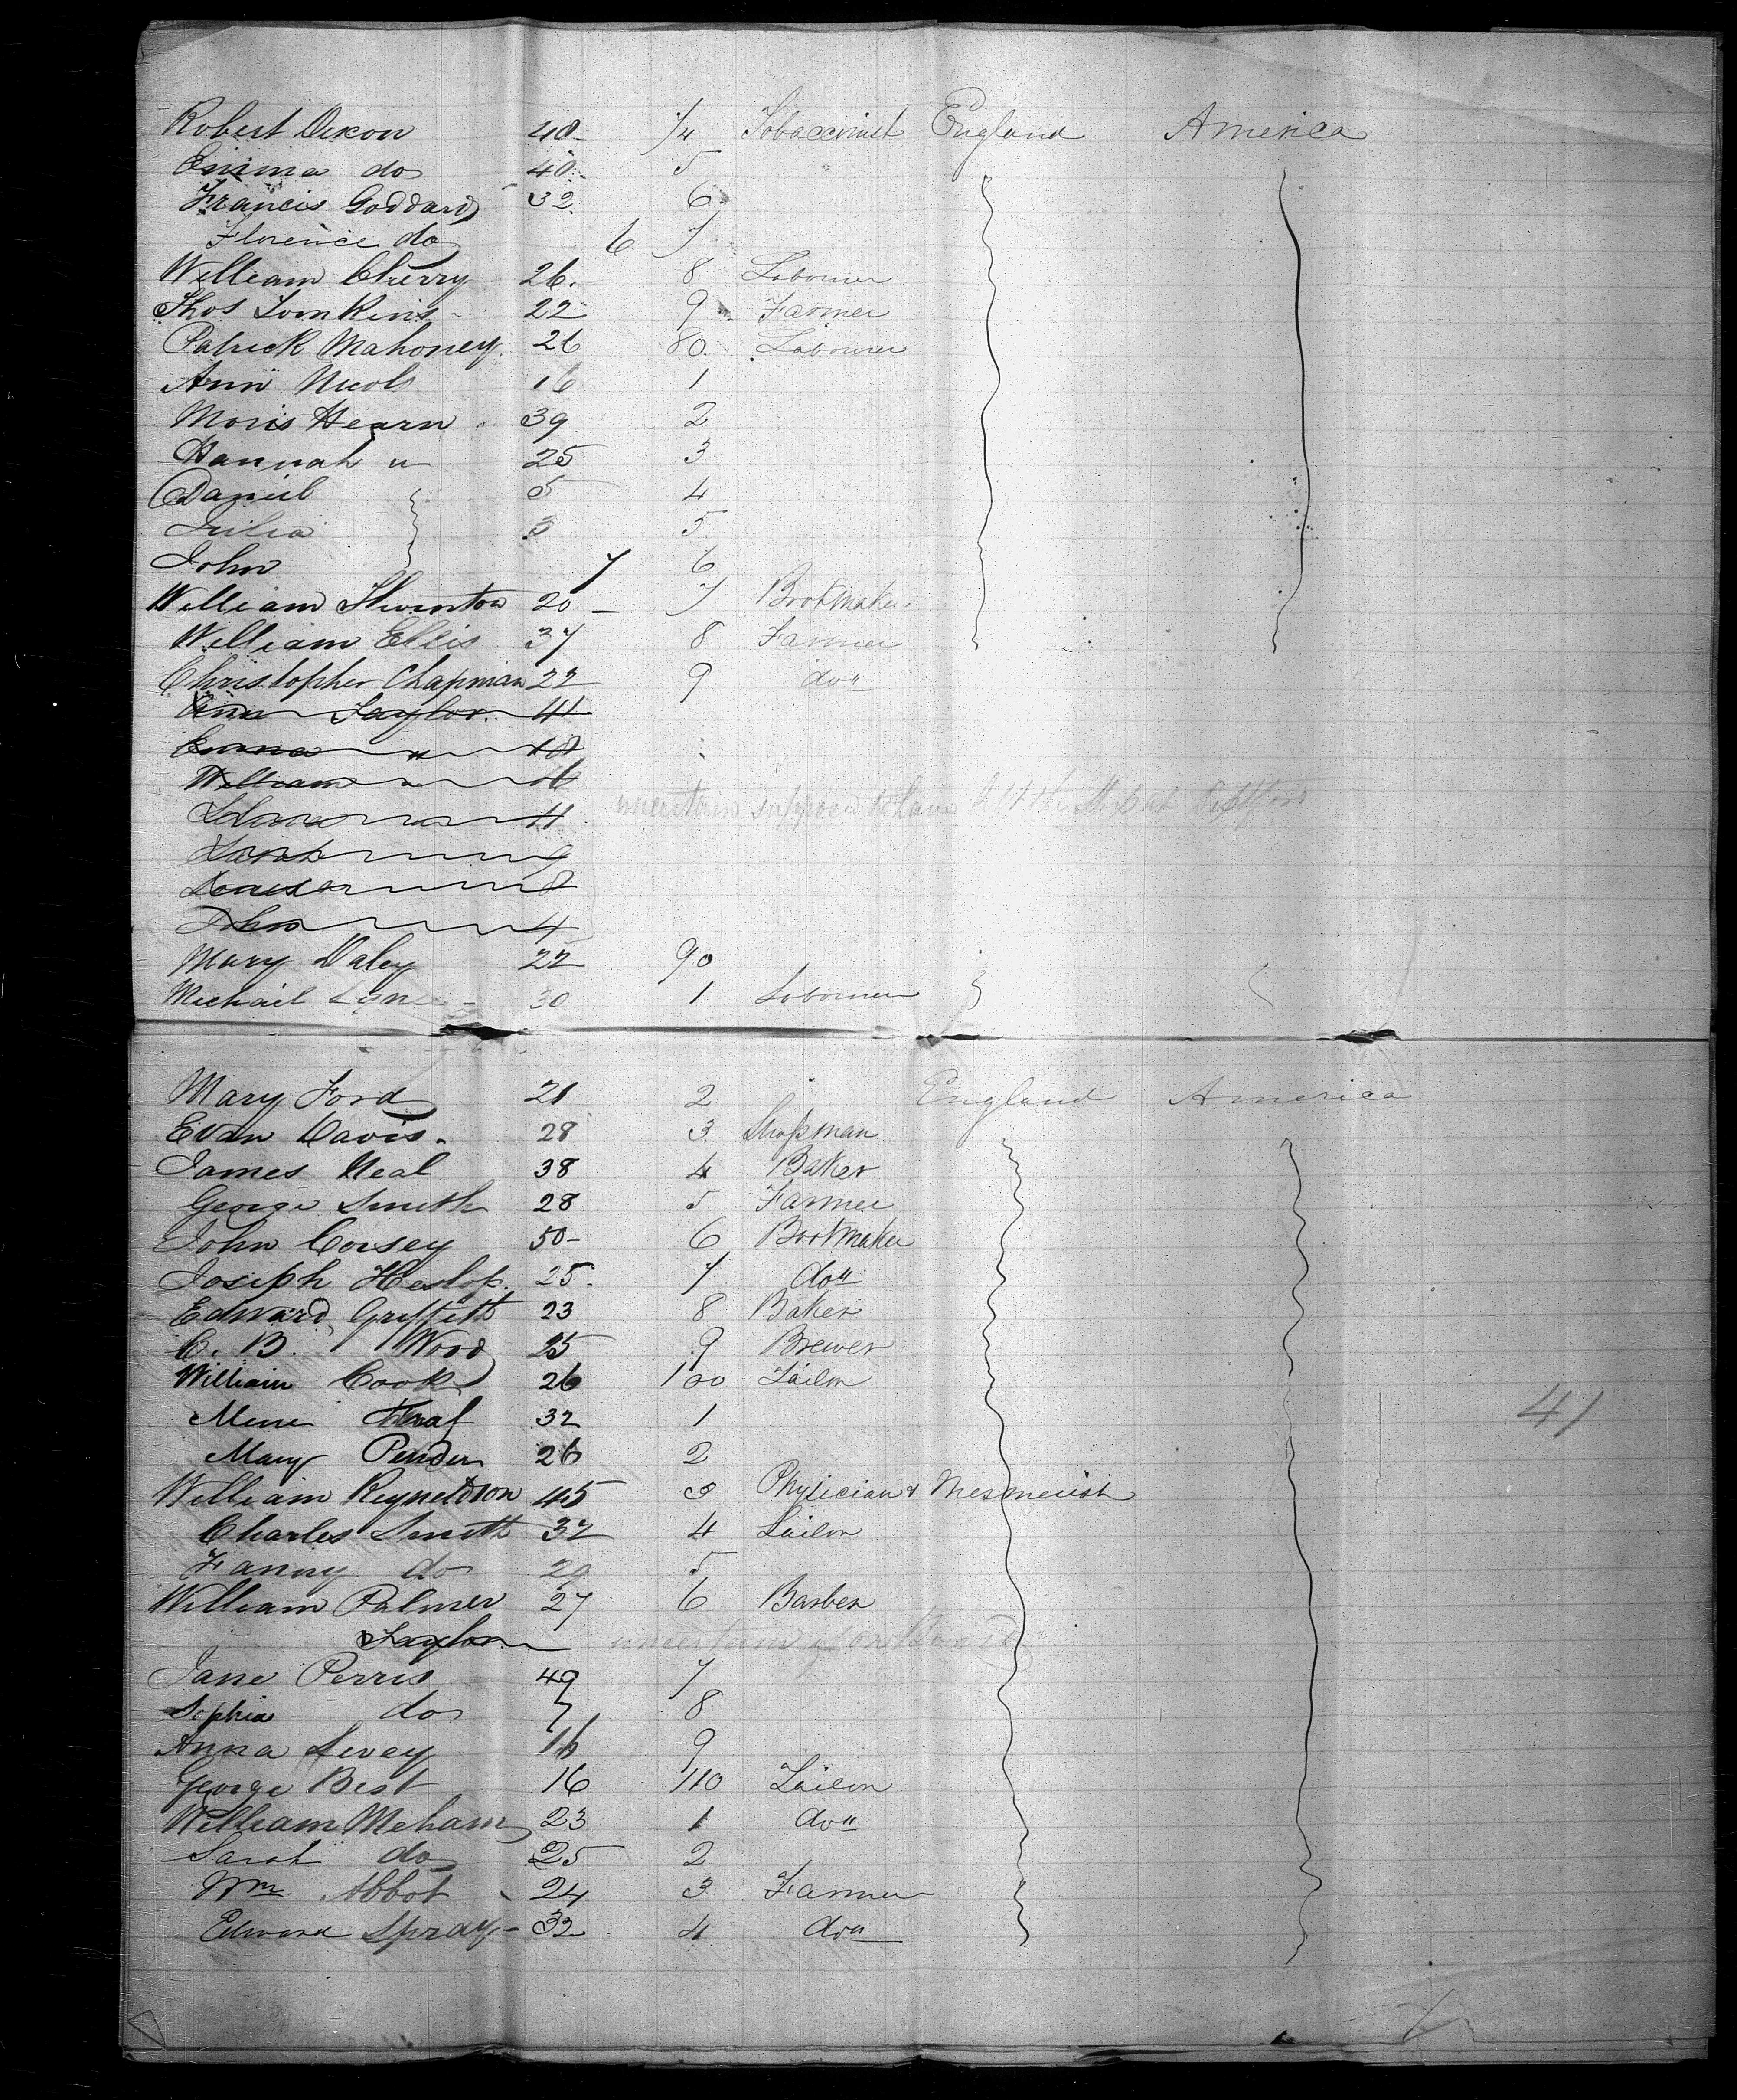 Robert Dixon 40 74 Tobacconist England America
Emma do 40 5
Francis Goddard 32 6
Florence do 6 7
William Cherry 26 8 Labourer
Thos Tomkins 22 9 Farmer
Patrick Mahoney 26 80 Labourer
Ann Nicols 16 1
Moris Hearn 39 2
Hannah " 25 3
Daniel 5 4
Julia 3 5
John 7 6
William Thurnton 20 7 Bootmaker
William Ellis 37 8 Farmer
Christopher Chapman 22 9 do"
Ann Taylor 41
Emma " 18
William " 16
11 uncertain suppose to have left the Ship at
Sarah 9
Louisa 8
John 4
Mary Daley 22 90
Michail Lyne 30 1 Labourer
Mary Ford 21 2 England America
Evan Davis 28 3 Shopman
James Neal 38 4 Baker
George Smith 28 5 Farmer
John Corsey 50 6 Bootmaker
Joseph Heslop 25 7 do"
Edward Griffith 23 8 Baker
C. B. Wood 25 9 Brewer
William Cook 26 100 Tailor
32 1
Mary Pender 26 2
William Reyneldson 45 3 Physician & Mesmerist
Charles Smith 32 4 Tailor
Fanny do 29 5
William Palmer 27 6 Barber
Taylor uncertain if on Board
Jane Perris 49 7
Sophia do 7 8
Anna Sevey 16 9
41
George Best 16 110 Tailor
William Meham 23 1 do"
Sarah do 25 2
Wm Abbot 24 3 Farmer
Edward Spray 32 4 do"